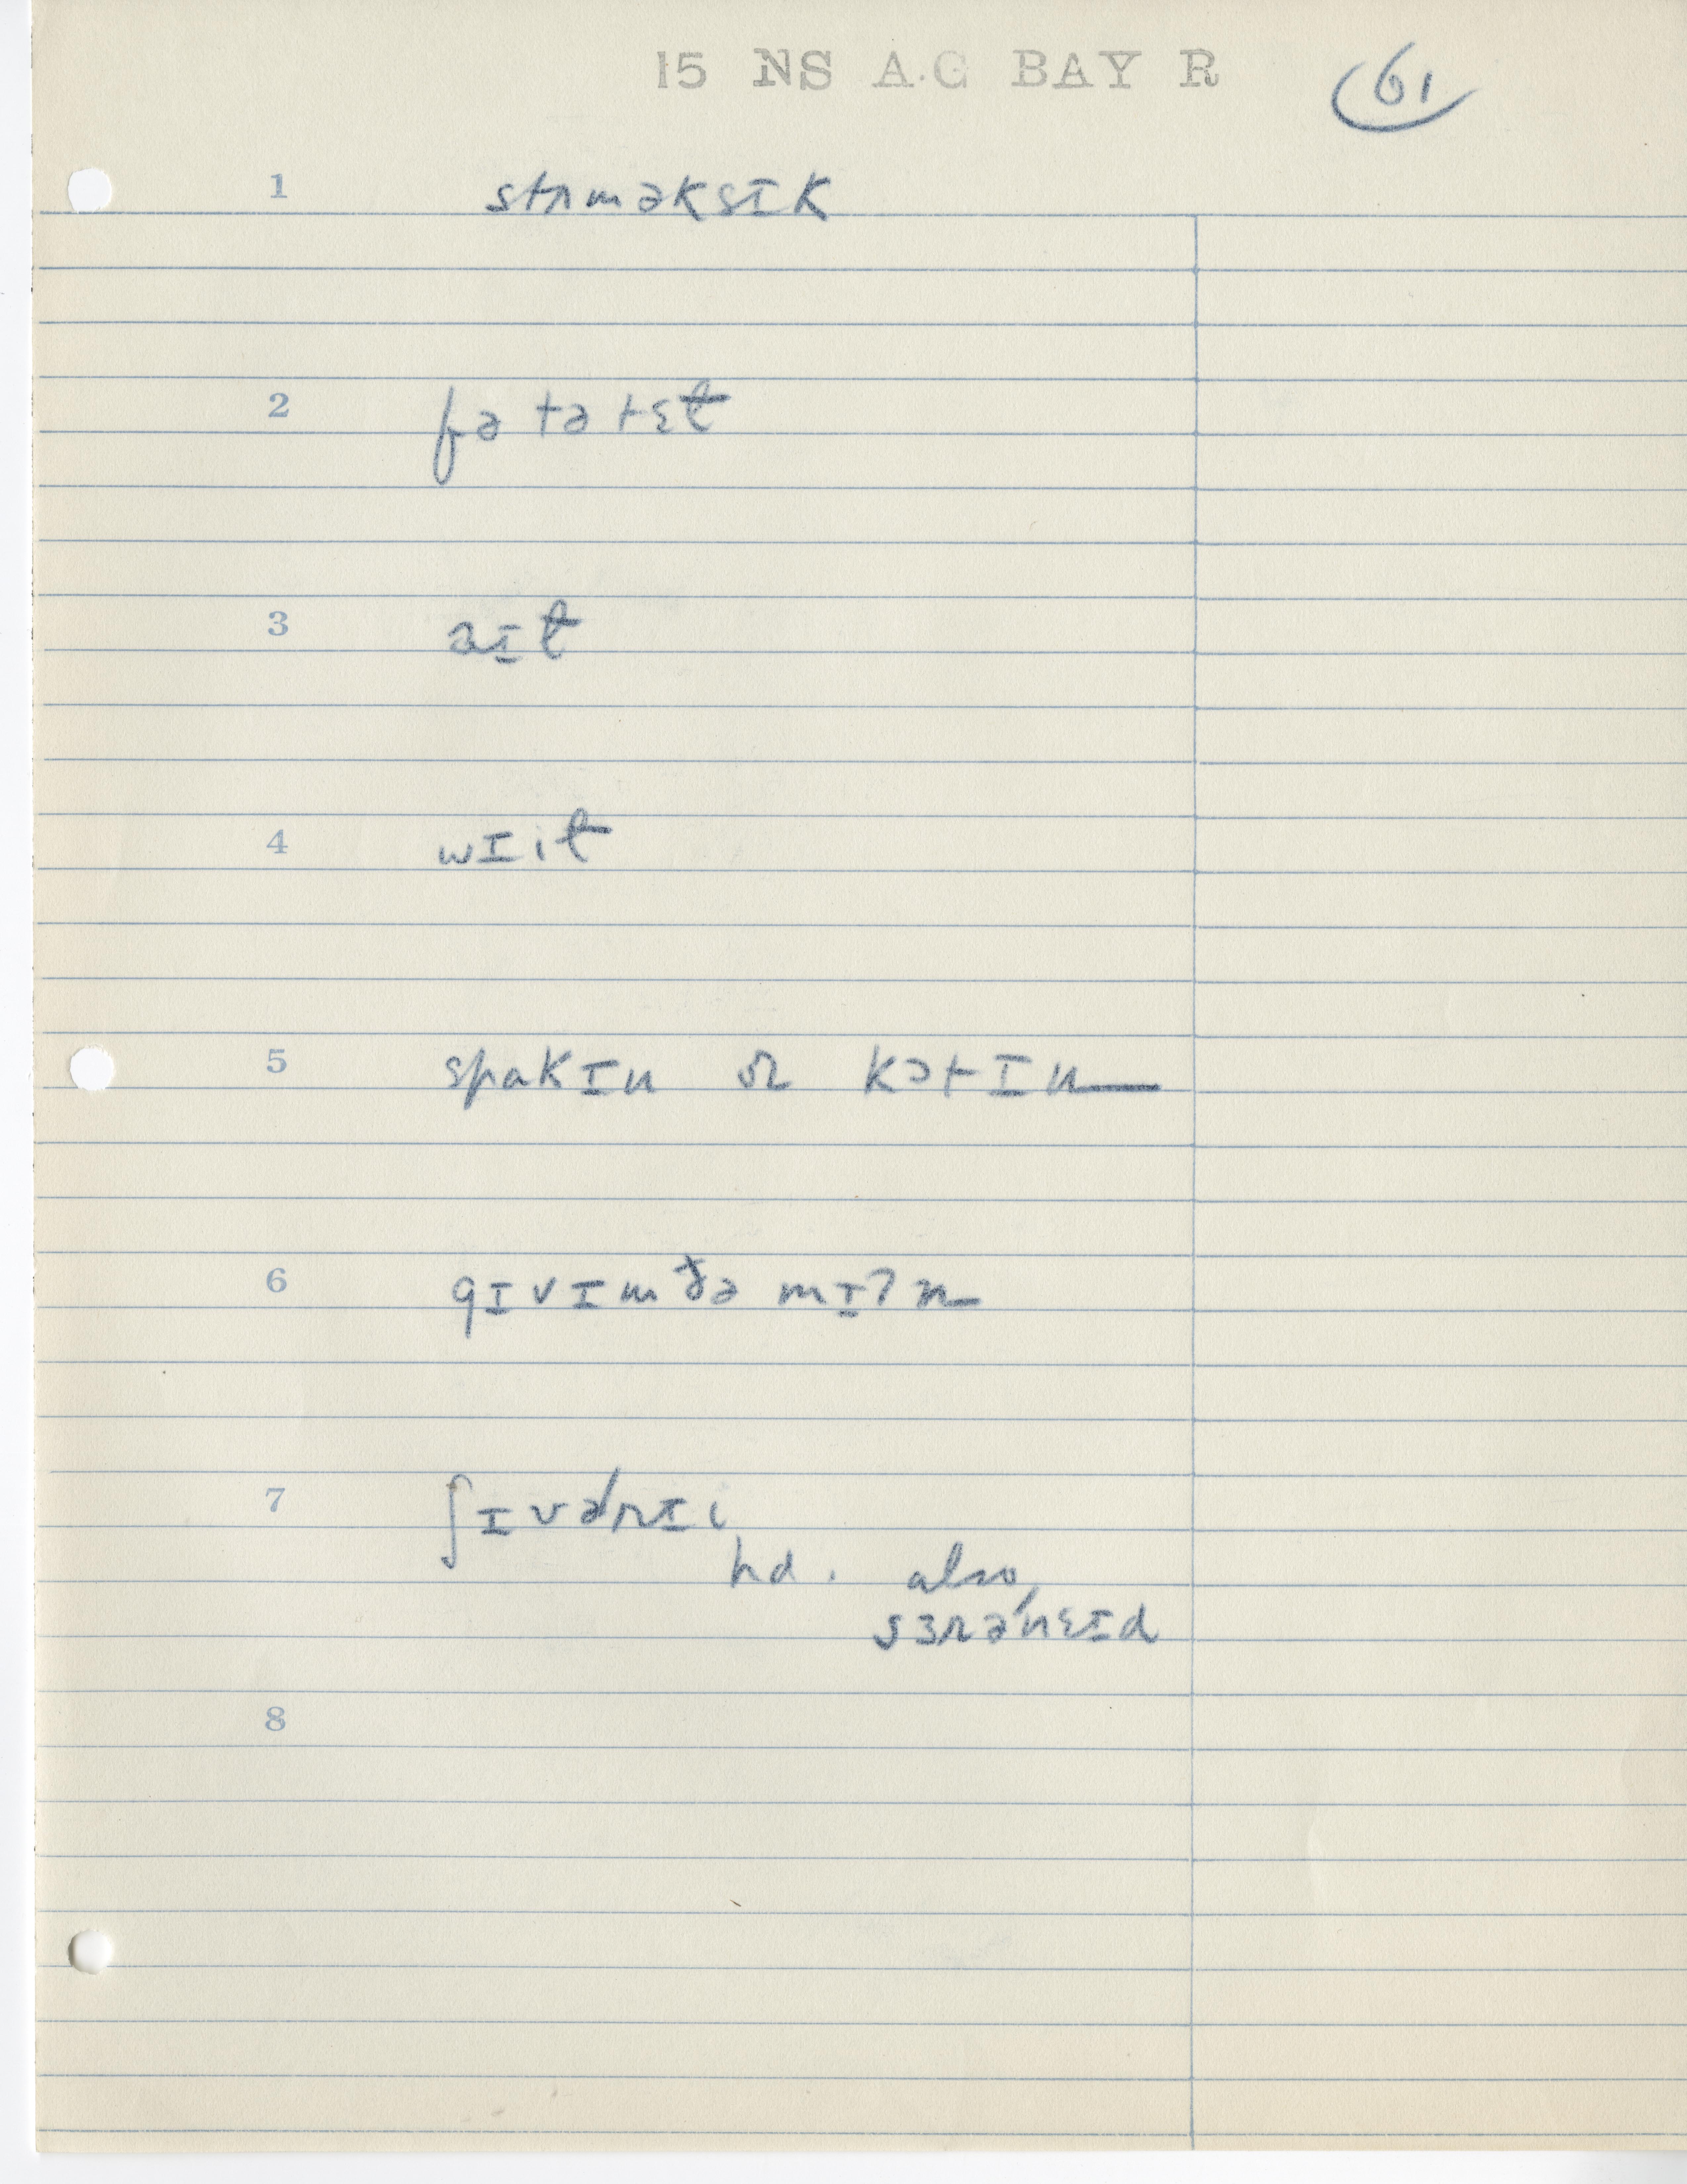 15 NS A.G BAY R 61
1 stʌməksɪk
2 fə tə tɛt̬
3 aɪt̬
4 wɪit̬
5 spɑkɪn or kɔtɪn
6 gɪvɪm ðə mɪʔn
7 ʃɪvərɪi
hd. also,
sɜrəneɪd
8